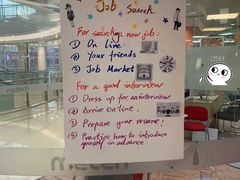 Job Search
For searching new job:
① On Line
② Your friends
③ Job Market
For a good interview
① Dress up for an interview
② Arrive on line.
③ Prepare your resume!
④ Practice how to introduce
yourself in advance